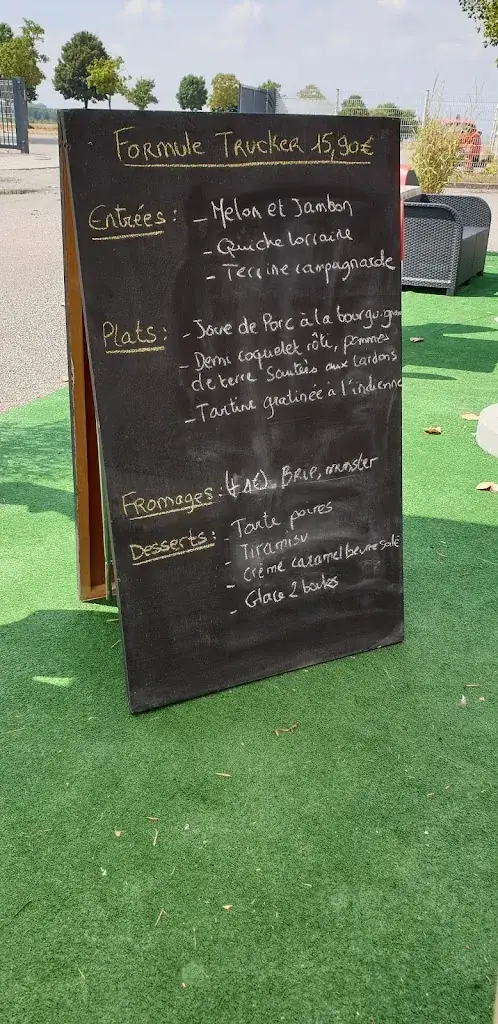 Formule Trucker 15,90€
Entrées : - Melon et Jambon
- Quiche lorraine
- Terrine campagnarde
Plats : - Joue de Porc à la bourguignonne
- Demi coquelet rôti, pommes
de terre sautées aux lardons
- Tartine gratinée à l'indienne
Fromages : (+1€) - Brie, munster
Desserts : - Tarte poires
- Tiramisu
- Crème caramel beurre salé
- Glace 2 boules